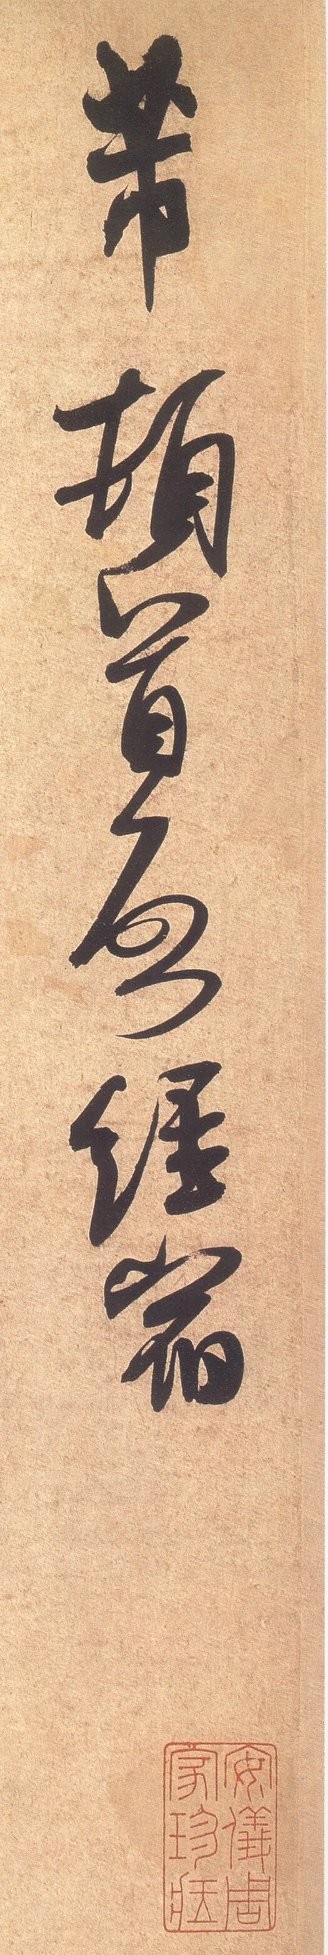 芾
頓首啓經宿
安儀周
家珍藏